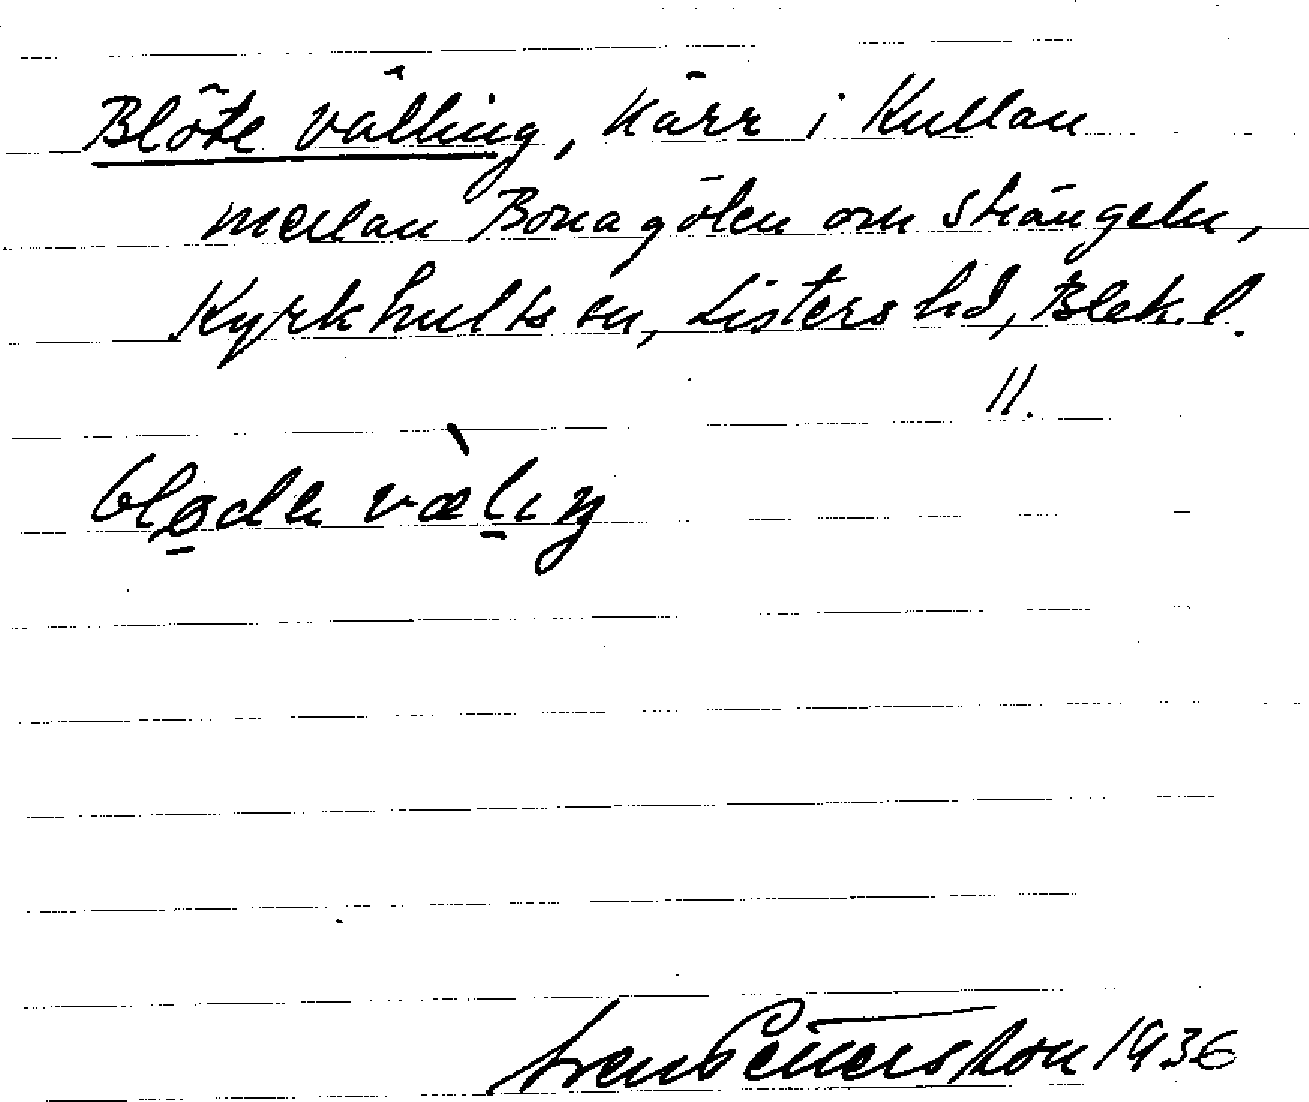 Blöte välling, kärr i Kullan
mellan Bonagölen om Strängeln,
Kyrkhults sn, Listers hd, Blek. l.
11.
blødh vælıŋ
Sven Pettersson 1936